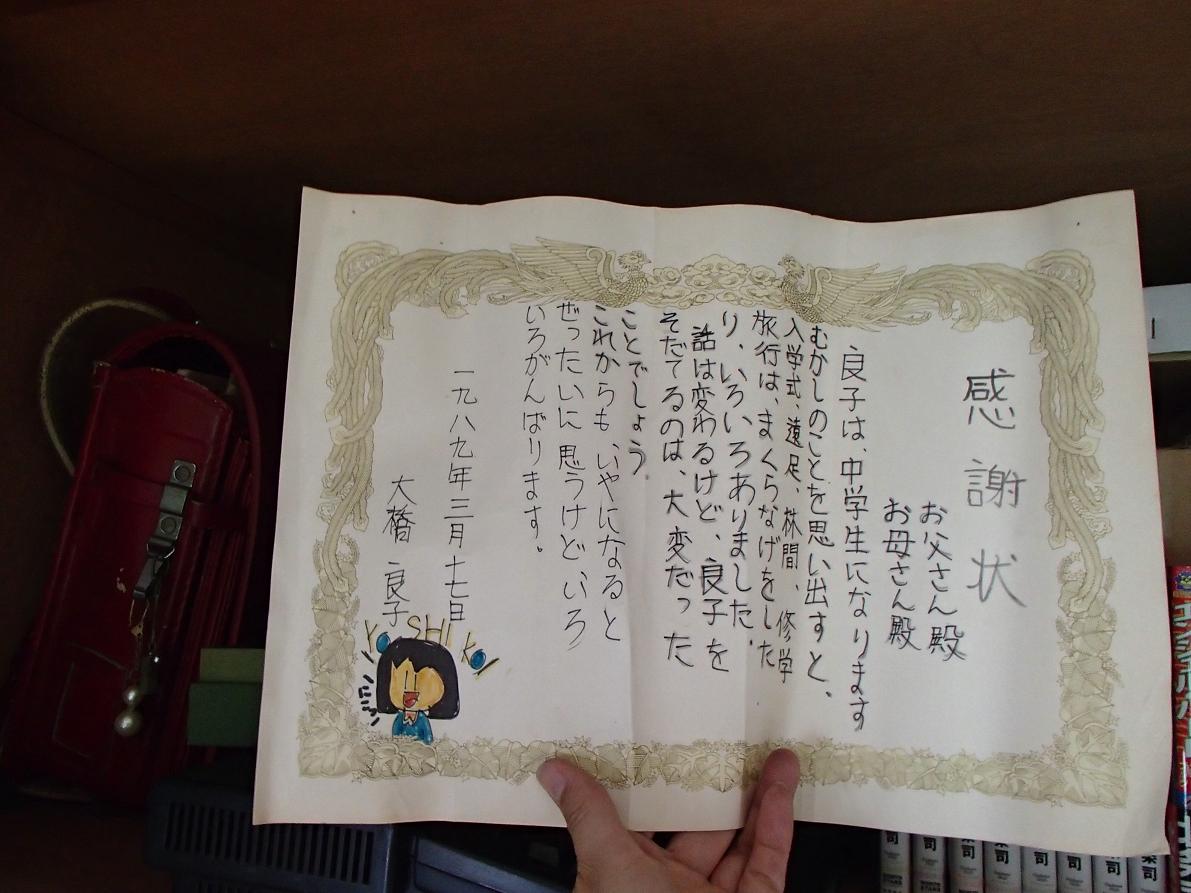 感謝状
お父さん殿
お母さん殿
良子は、中学生になります
むかしのことを思い出すと、
入学式、遠足、林間、修学
旅行は、まくらなげをした
り、いろいろありました。
話は変わるけど、良子を
そだてるのは、大変だった
ことでしょう。
これからも、いやになると
ぜったいに思うけどいろ
いろがんばります。
一九八九年三月十七日
大橋 良子
YOSHIKO